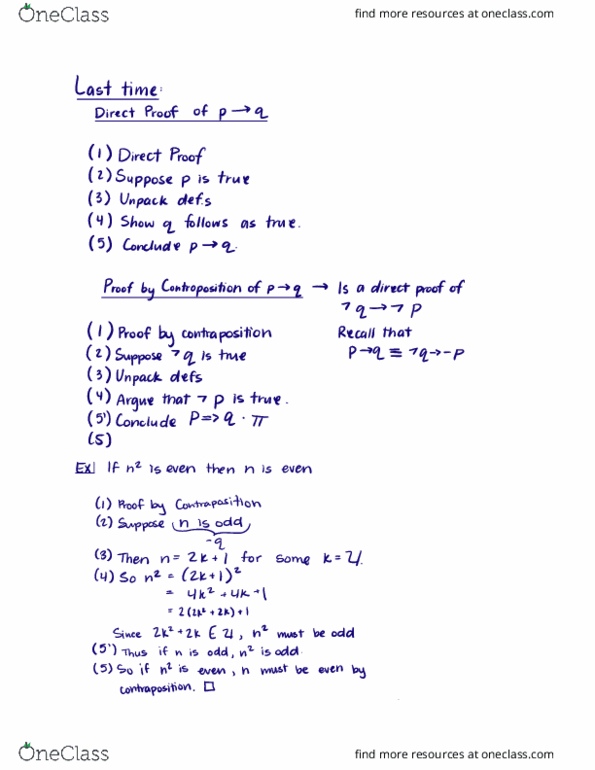 OneClass
find more resources at oneclass.com
Last time:
Direct Proof of p → q
(1) Direct Proof
(2) Suppose p is true
(3) Unpack defs
(4) Show q follows as true.
(5) Conclude p → q.
Proof by Controposition of p → q → Is a direct proof of
¬ q → ¬ P
(1) Proof by contraposition
Recall that
(2) Suppose ¬ q is true
P → q ≡ ¬q → ¬P
(3) Unpack defs
(4) Argue that ¬ p is true.
(5') Conclude P => q . π
(5)
Ex| If n² is even then n is even
(1) Proof by Contraposition
(2) Suppose n is odd
¬q
(3) Then n = 2k + 1 for some k = ℤ.
(4) So n² = (2k+1)²
= 4k² + 4k + 1
= 2(2k² + 2k) + 1
Since 2k² + 2k ∈ ℤ, n² must be odd
(5') Thus if n is odd, n² is odd.
(5) So if n² is even, n must be even by
contraposition. □
OneClass
find more resources at oneclass.com